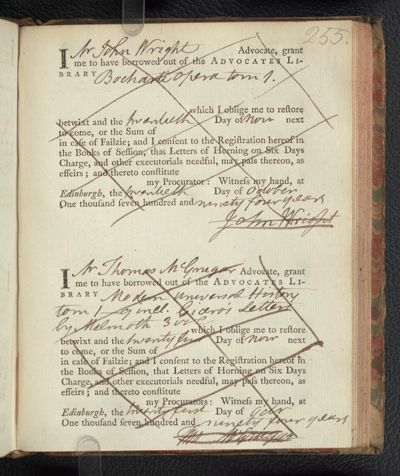 255.
I Mr John Wright Advocate, grant
me to have borrowed out of the ADVOCATES LI-
BRARY Bocharti Opera tom 1.
which I oblige me to reſtore
betwixt and the twentieth Day of Novr next
to come, or the Sum of
in caſe of Failzie; and I conſent to the Regiſtration hereof in
the Books of Seſſion, that Letters of Horning on Six Days
Charge, and other executorials needful, may paſs thereon, as
effeirs; and thereto conſtitute
my Procurator: Witneſs my hand, at
Edinburgh, the twentieth Day of October
One thouſand ſeven hundred and ninety four years
John Wright
I Mr Thomas McGregor Advocate, grant
me to have borrowed out of the ADVOCATES LI-
BRARY Modern Universal History
tom 1 Ciceros Letters
by Melmoth 3 vol which I oblige me to reſtore
betwixt and the twenty first Day of Novr next
to come, or the Sum of
in caſe of Failzie; and I conſent to the Regiſtration hereof in
the Books of Seſſion, that Letters of Horning on Six Days
Charge, and other executorials needful, may paſs thereon, as
effeirs; and thereto conſtitute
my Procurators: Witneſs my hand, at
Edinburgh, the twenty first Day of Octr
One thouſand ſeven hundred and ninety four years